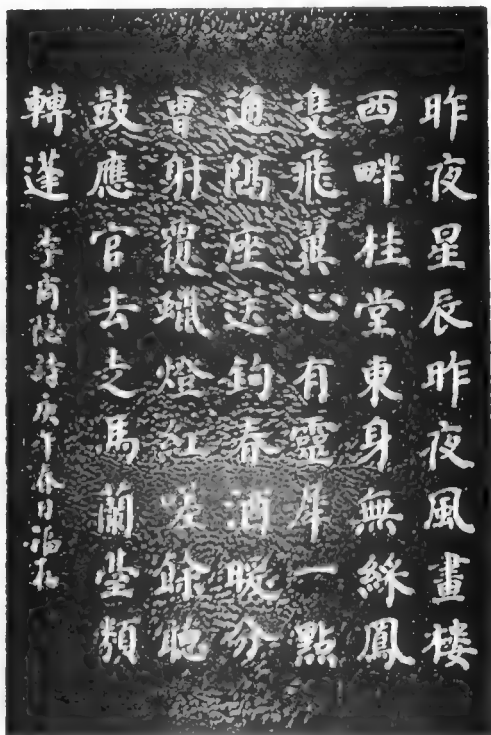 昨夜星辰昨夜風畫楼
西畔桂堂東身無綵鳳
雙飛翼心有靈犀一點
通隔座送鈎春酒暖分
曹射覆蠟燈紅嗟餘聴
鼓應官去走馬蘭臺類
轉蓬 李商隐詩 庚午春日